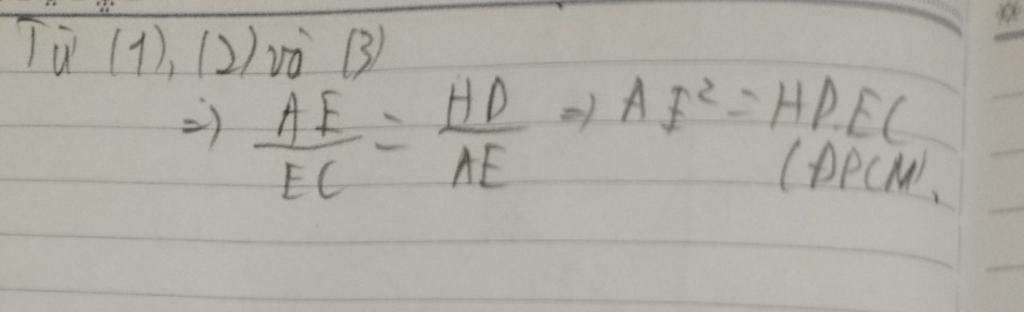 Từ (1), (2) và (3)
=) AE/EC = HD/AE =) AE² = HD.EC
(ĐPCM).